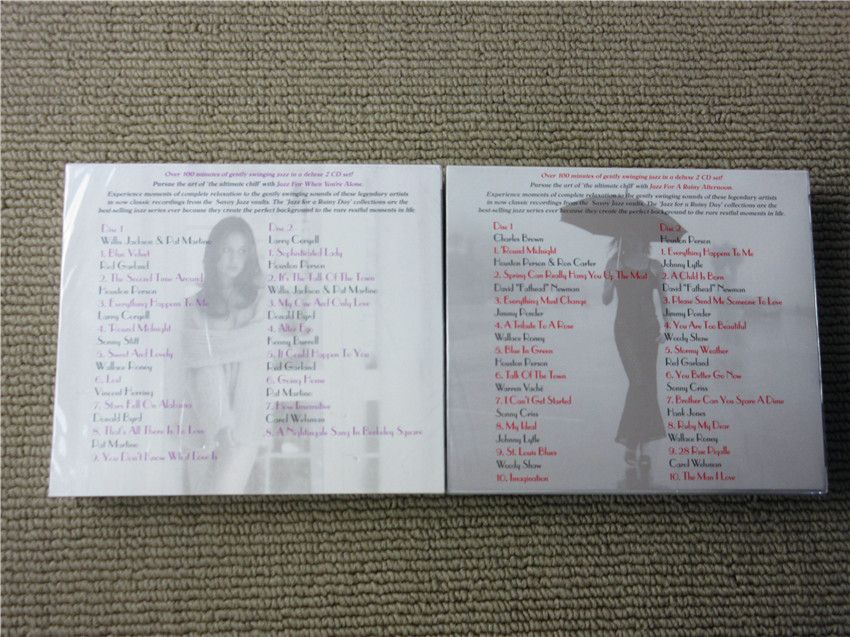 Over 100 minutes of gently swinging jazz in a deluxe 2 CD set!
Pursue the art of 'the ultimate chill' with Jazz For When You're Alone.
Experience moments of complete relaxation to the gently swinging sounds of these legendary artists
in now classic recordings from the Savoy Jazz vaults. The 'Jazz for a Rainy Day' collections are the
best-selling jazz series ever because they create the perfect background to the rare restful moments in life.
Disc 1
Willis Jackson & Pat Martino
1. Blue Velvet
Red Garland
2. The Second Time Around
Houston Person
3. Everything Happens To Me
Larry Coryell
4. 'Round Midnight
Sonny Stitt
5. Sweet And Lovely
Wallace Roney
6. Lost
Vincent Herring
7. Stars Fell On Alabama
Donald Byrd
8. That's All There Is To Love
Pat Martino
9. You Don't Know What Love Is
Disc 2
Larry Coryell
1. Sophisticated Lady
Houston Person
2. It's The Talk Of The Town
Willis Jackson & Pat Martino
3. My One And Only Love
Donald Byrd
4. Alter Ego
Kenny Burrell
5. It Could Happen To You
Red Garland
6. Going Home
Pat Martino
7. How Insensitive
Carol Welsman
8. A Nightingale Sang In Berkeley Square
Over 100 minutes of gently swinging jazz in a deluxe 2 CD set!
Pursue the art of 'the ultimate chill' with Jazz For A Rainy Afternoon
Experience moments of complete relaxation to the gently swinging sounds of these legendary artists
in now classic recordings from the Savoy Jazz vaults. The 'Jazz for a Rainy Day' collections are the
best-selling jazz series ever because they create the perfect background to the rare restful moments in life.
Disc 1
Charles Brown
1. 'Round Midnight
Houston Person & Ron Carter
2. Spring Can Really Hang You Up The Most
David "Fathead" Newman
3. Everything Must Change
Jimmy Ponder
4. A Tribute To A Rose
Wallace Roney
5. Blue In Green
Houston Person
6. Talk Of The Town
Warren Vaché
7. I Can't Get Started
Sonny Criss
8. My Ideal
Johnny Lytle
9. St. Louis Blues
Woody Shaw
10. Imagination
Disc 2
Houston Person
1. Everything Happens To Me
Johnny Lytle
2. A Child Is Born
David "Fathead" Newman
3. Please Send Me Someone To Love
Jimmy Ponder
4. You Are Too Beautiful
Woody Shaw
5. Stormy Weather
Red Garland
6. You Better Go Now
Sonny Criss
7. Brother Can You Spare A Dime
Hank Jones
8. Ruby My Dear
Wallace Roney
9. 28 Rue Pigalle
Carol Welsman
10. The Man I Love